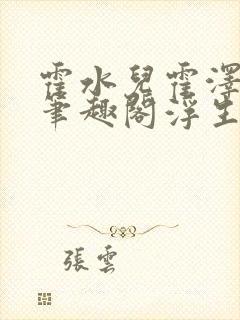 霍水兒霍澤
筆趣閣浮生
張雲